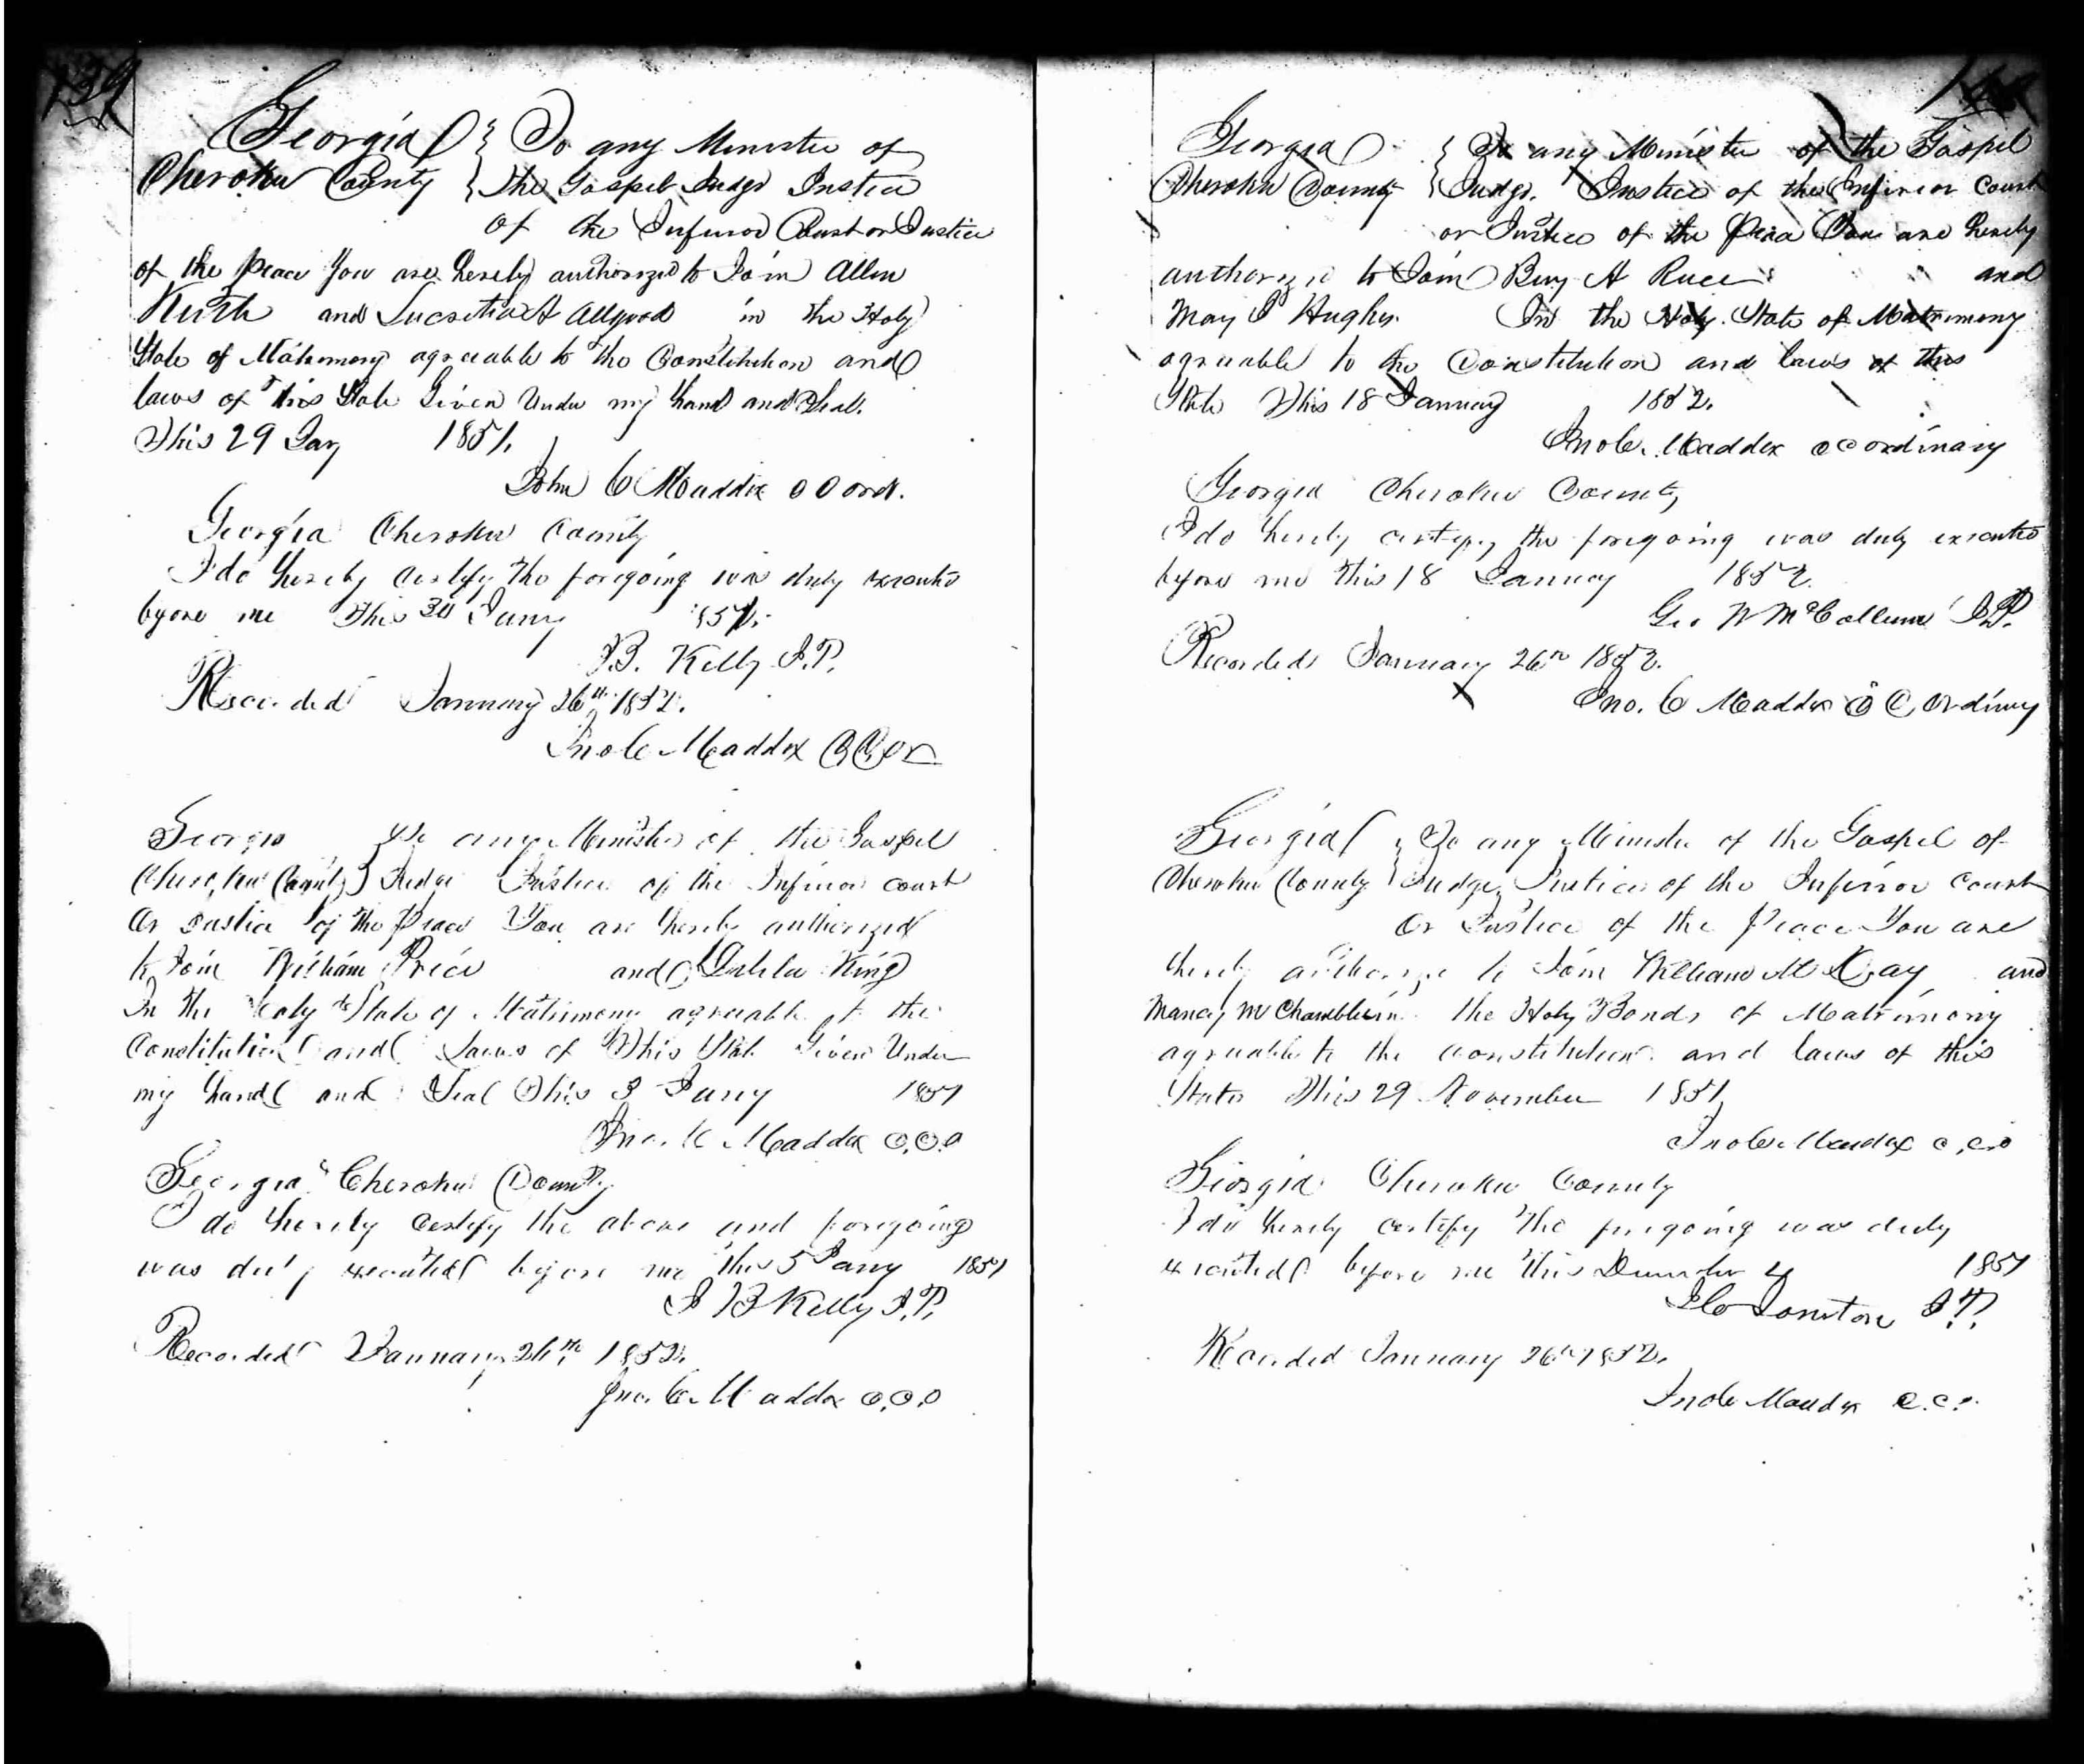 139
Georgia } To any Minister of
Cherokee County } the Gospel Judge Justice
of the Inferior Court or Justice
of the Peace You are hereby authorized to Join Allen
Keith and Lucretia A Allgood in the Holy
State of Matrimony agreeable to the Constitution and
laws of this State Given Under my hand and Seal.
This 29 Jany 1851.
John C Maddox C C Ord.
Georgia Cherokee County
I do hereby certify the foregoing was duly executed
before me This 30 Jany 1851.
J.B. Kelly J.P.
Recorded January 26th 1852.
Jno C Maddox C C Or
Georgia To any Minister of the Gospel
Cherokee County } Judge Justice of the Inferior court
Or Justice of the Peace You are hereby authorized
to Join William Price and Delila King
In the Holy State of Matrimony agreeable to the
Constitution and Laws of This State Given Under
my hand and Seal This 3 Jany 1851
Jno. C Maddox C.C.O
Georgia Cherokee County
I do hereby certify the above and foregoing
was duly executed before me this 5 Jany 1851
J B Kelly J.P.
Recorded January 26th 1852.
Jno. C. Maddox C.C.O
Georgia } To any Minister of the Gospel
Cherokee County } Judge. Justice of the Inferior Court
or Justice of the Peace You are hereby
authorized to Join Berry A and
Mary Hughes. In the Holy State of Matrimony
agreeable to the Constitution and laws of this
State This 18 January 1852.
Jno C. Maddox C C ordinary
Georgia Cherokee County
I do hereby certify the foregoing was duly executed
before me this 18 January 1852.
Geo W McCollum J.P.
Recorded January 26th 1852.
Jno. C Maddox C C Ordinary
Georgia } To any Minister of the Gospel of
Cherokee County } Judge, Justice of the Inferior Court
Or Justice of the Peace You are
hereby authorize to Join William M Day and
Nancy M Chamblee in the Holy Bonds of Matrimony
agreeable to the constitution and laws of this
State This 29 November 1851
Jno C Maddox C.C.O
Georgia Cherokee County
I do hereby certify the foregoing was duly
executed before me this December 4 1851
Johnston J.P.
Recorded January 26th 1852.
Jno C Maddox C.C.O.